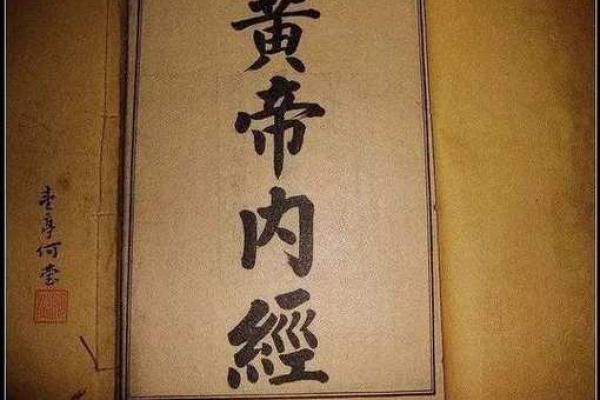 黃帝内經